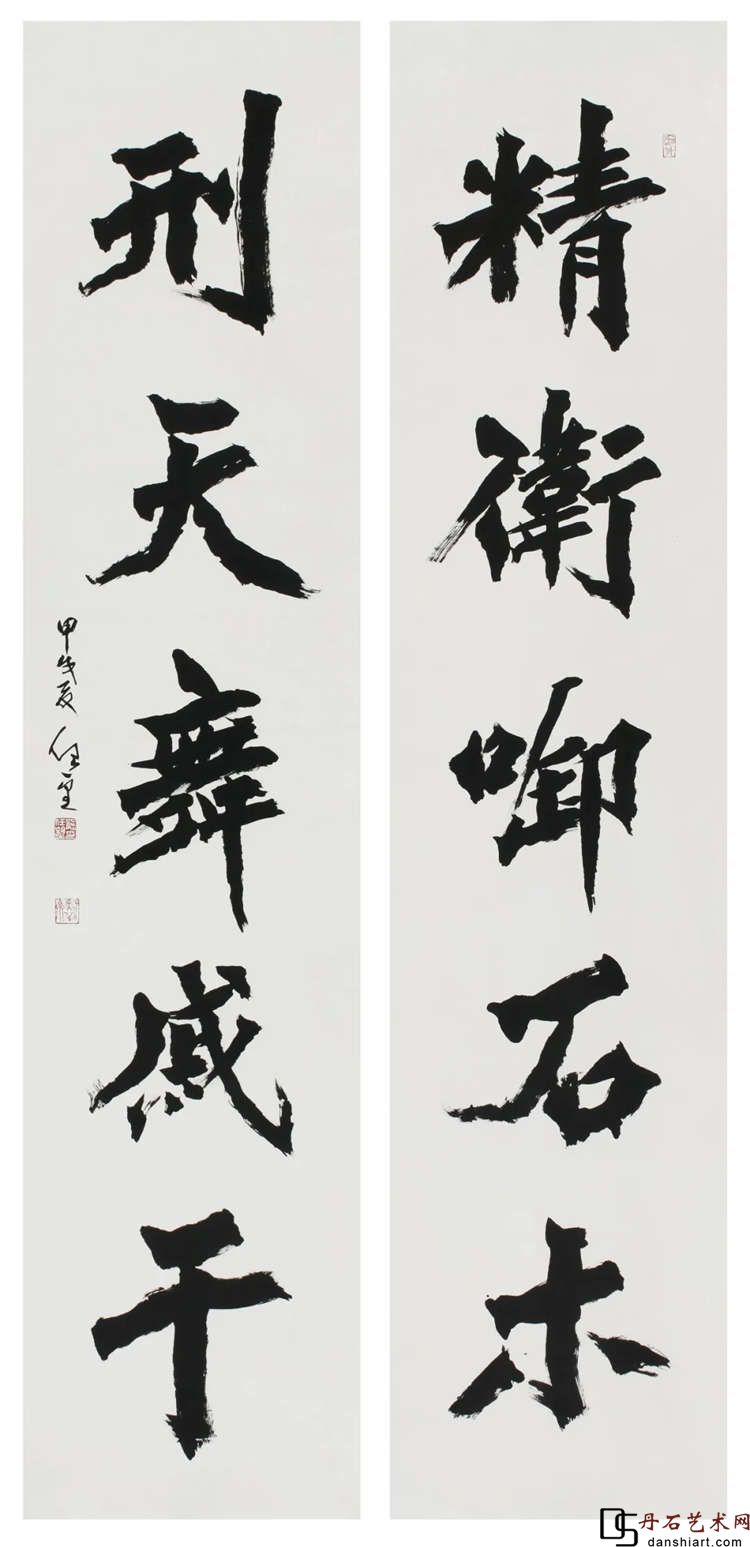 精衛啣石木
刑天舞戚干
甲午夏 任平
丹石艺术网
danshiart.com